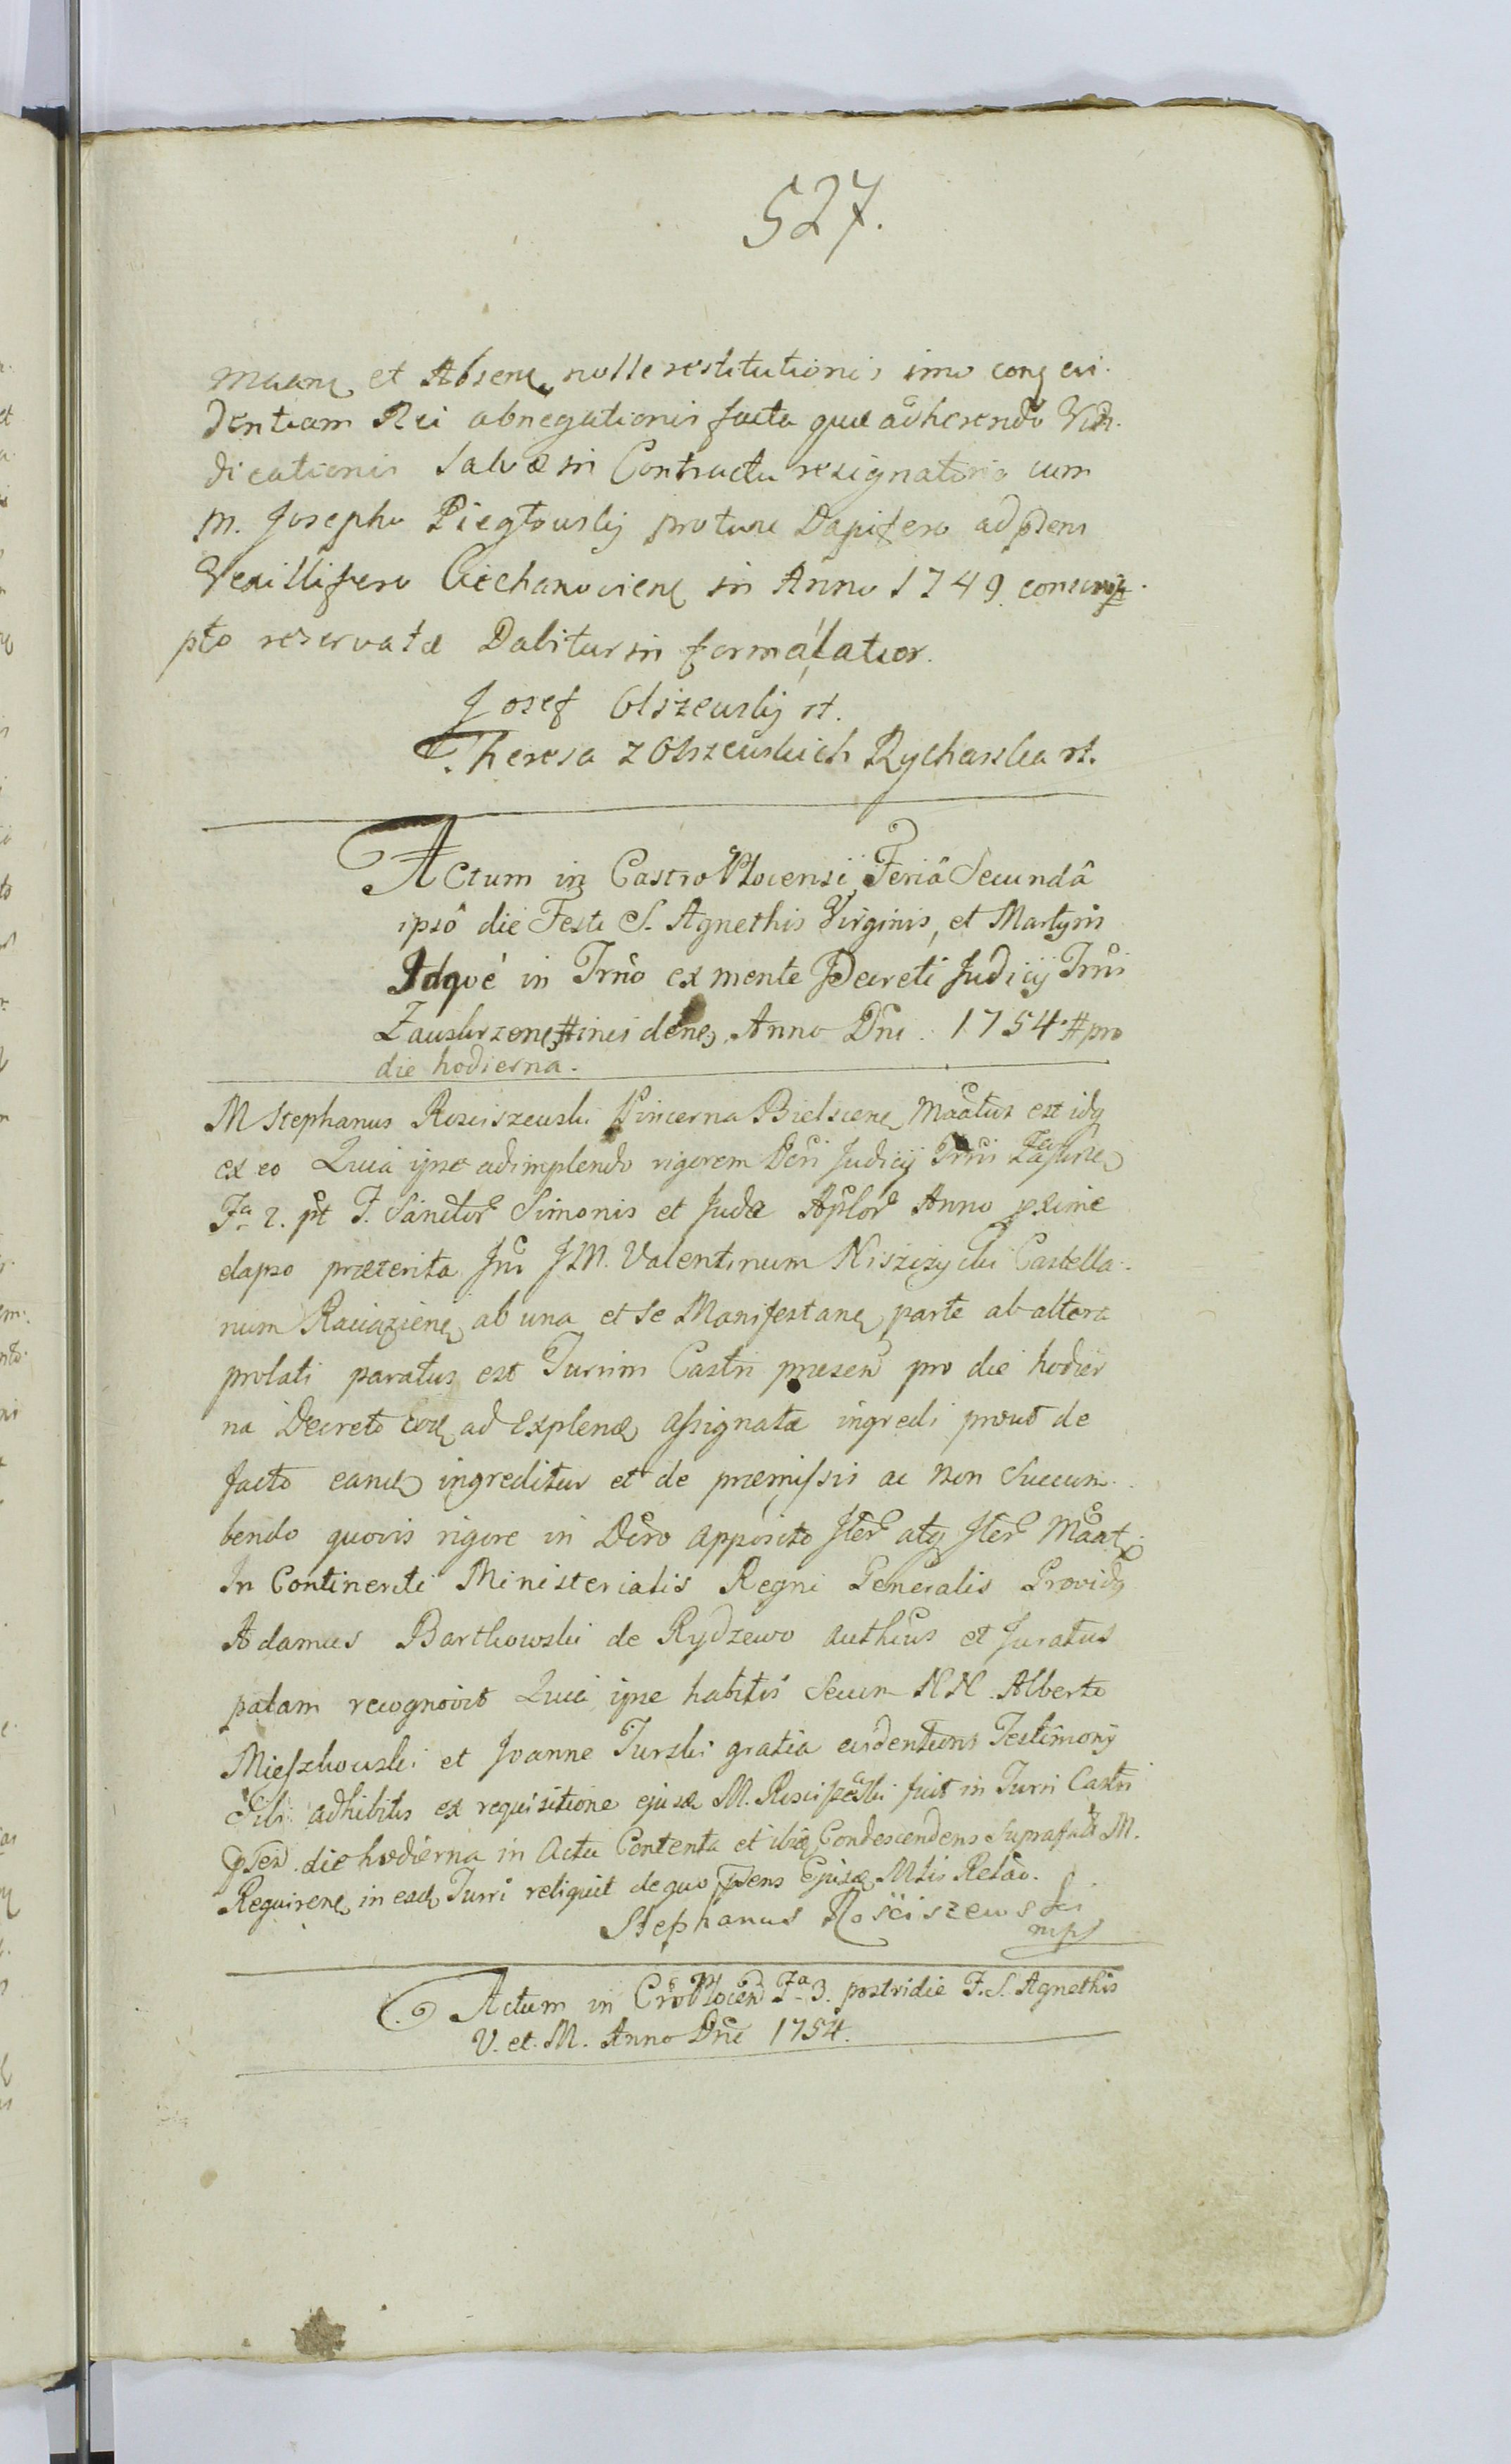 527.
Maanĕ et Absenĕ nolle restitutionis imo conĕ evi.
dentiam Rei abnegationis facta quæ adhærendo Vin.
dicationis Salvæ in Contractu resignatorio cum
M. Josepho Piegłowskij protunc Dapifero ad pñens
Vexillifero Ciechanovienĕ in Anno 1749 conscri
pto reservatæ Dabitur in forma latior.
Josef Olszewskij rt.
Theresa z Olszewskich Rycharska rt.
Actum in Castro Plocensi Feriâ Secundâ
ipsô die Festi S. Agnethis Virginis, et Martyris
Idqvè in Trno ex mente Decreti Judicij Trni
Zauskrzenĕ # incidenĕ Anno Dni 1754 # pro
die hodierna.
M Stephanus Rosciszewski Pincerna Bielscenĕ Maatus est idĕ
ex eo Quia ipse adimplendo rigorem Dcri Judicij Trni Zaskrzĕ
Fa 2. pt F. Sanctor Simonis et Judæ Aplor Anno pxime
elapso præterita Int JM. Valentinum Niszczycki Castella.
num Raciązienĕ ab una et se Manifestanĕ parte ab altera
prolati paratus est Turrim Castri præsen pro die hodier
na Decreto eodĕ ad explenđ assignatæ ingredi prout de
facto eandĕ ingreditur et de præmissis ac non Succum.
bendo quovis rigore in Dcro apposito Iter atĕ Iter Maat.
In Continenti Ministerialis Regni Generalis Providĕ
Adamus Bartkowski de Rydzewo authcus et Juratus
palam recognovit Quia ipse habitis Secum NN. Alberto
Mieszkowski et Joanne Turski gratia evidentioris Testimonij
Sibi adhibitis ex requisitione ejusđ M. Rosciszewski fuit in Turri Castri
pñen die hodierna in Actu Contenta et ibiđ Condescendens Suprafatt M.
Requirenĕ in eadĕ Turri reliquit de quo pñens Ejusđ Mlis Relao.
Stephanus Rosciszewski
mp
Actum in Cro Plocen Fa 3. postridie F. S. Agnethis
V. et. M. Anno Dni 1754.